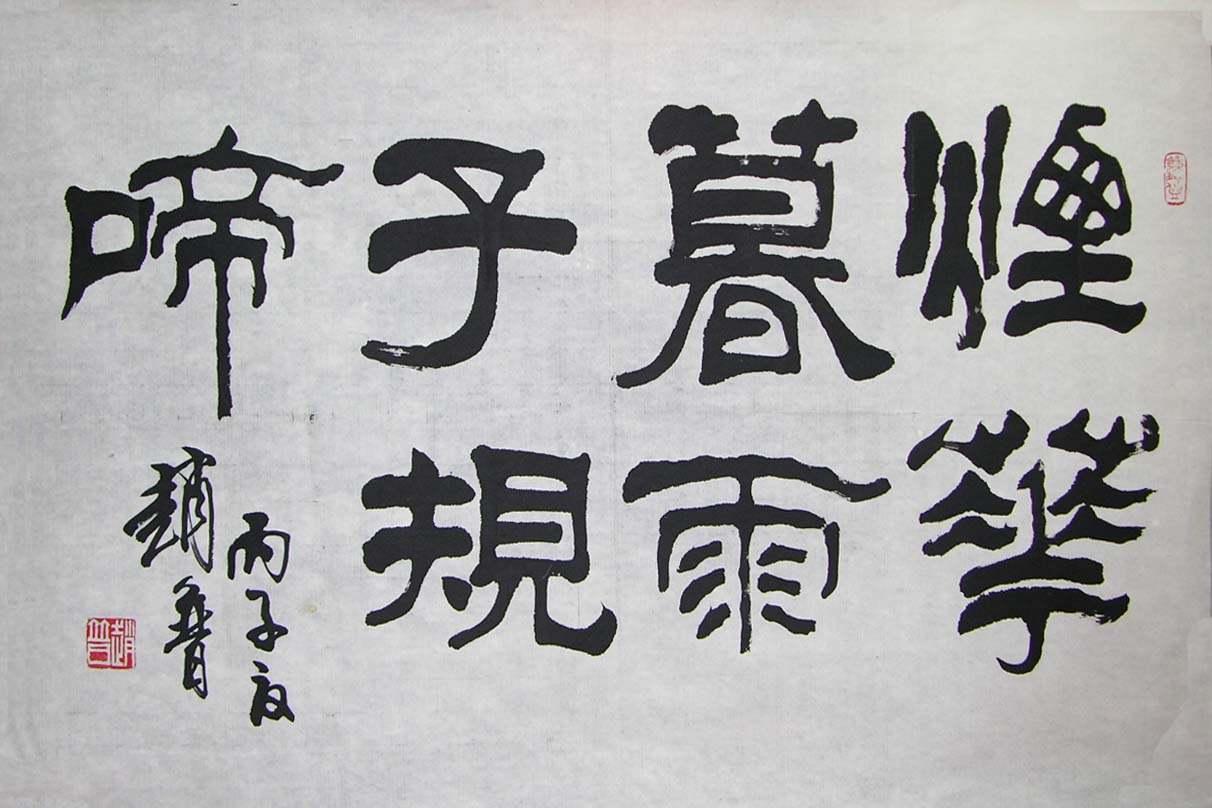 煙華
暮雨
子規
啼
丙子
趙普
趙普